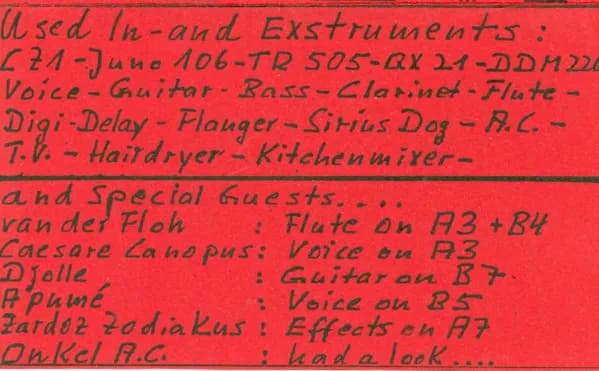 Used In-and Exstruments:
CZ1-Juno 106-TR 505-QX 21-DDM220
Voice-Guitar-Bass-Clarinet-Flute-
Digi-Delay-Flanger-Sirius Dog-A.C.-
T.V.-Hairdryer-Kitchenmixer-
and Special Guests....
van der Floh : Flute on A3+B4
Caesare Canopus: Voice on A3
Djolle : Guitar on B7
Apumé : Voice on B5
Zardoz Zodiakus : Effects on A7
Onkel A.C. : had a look....